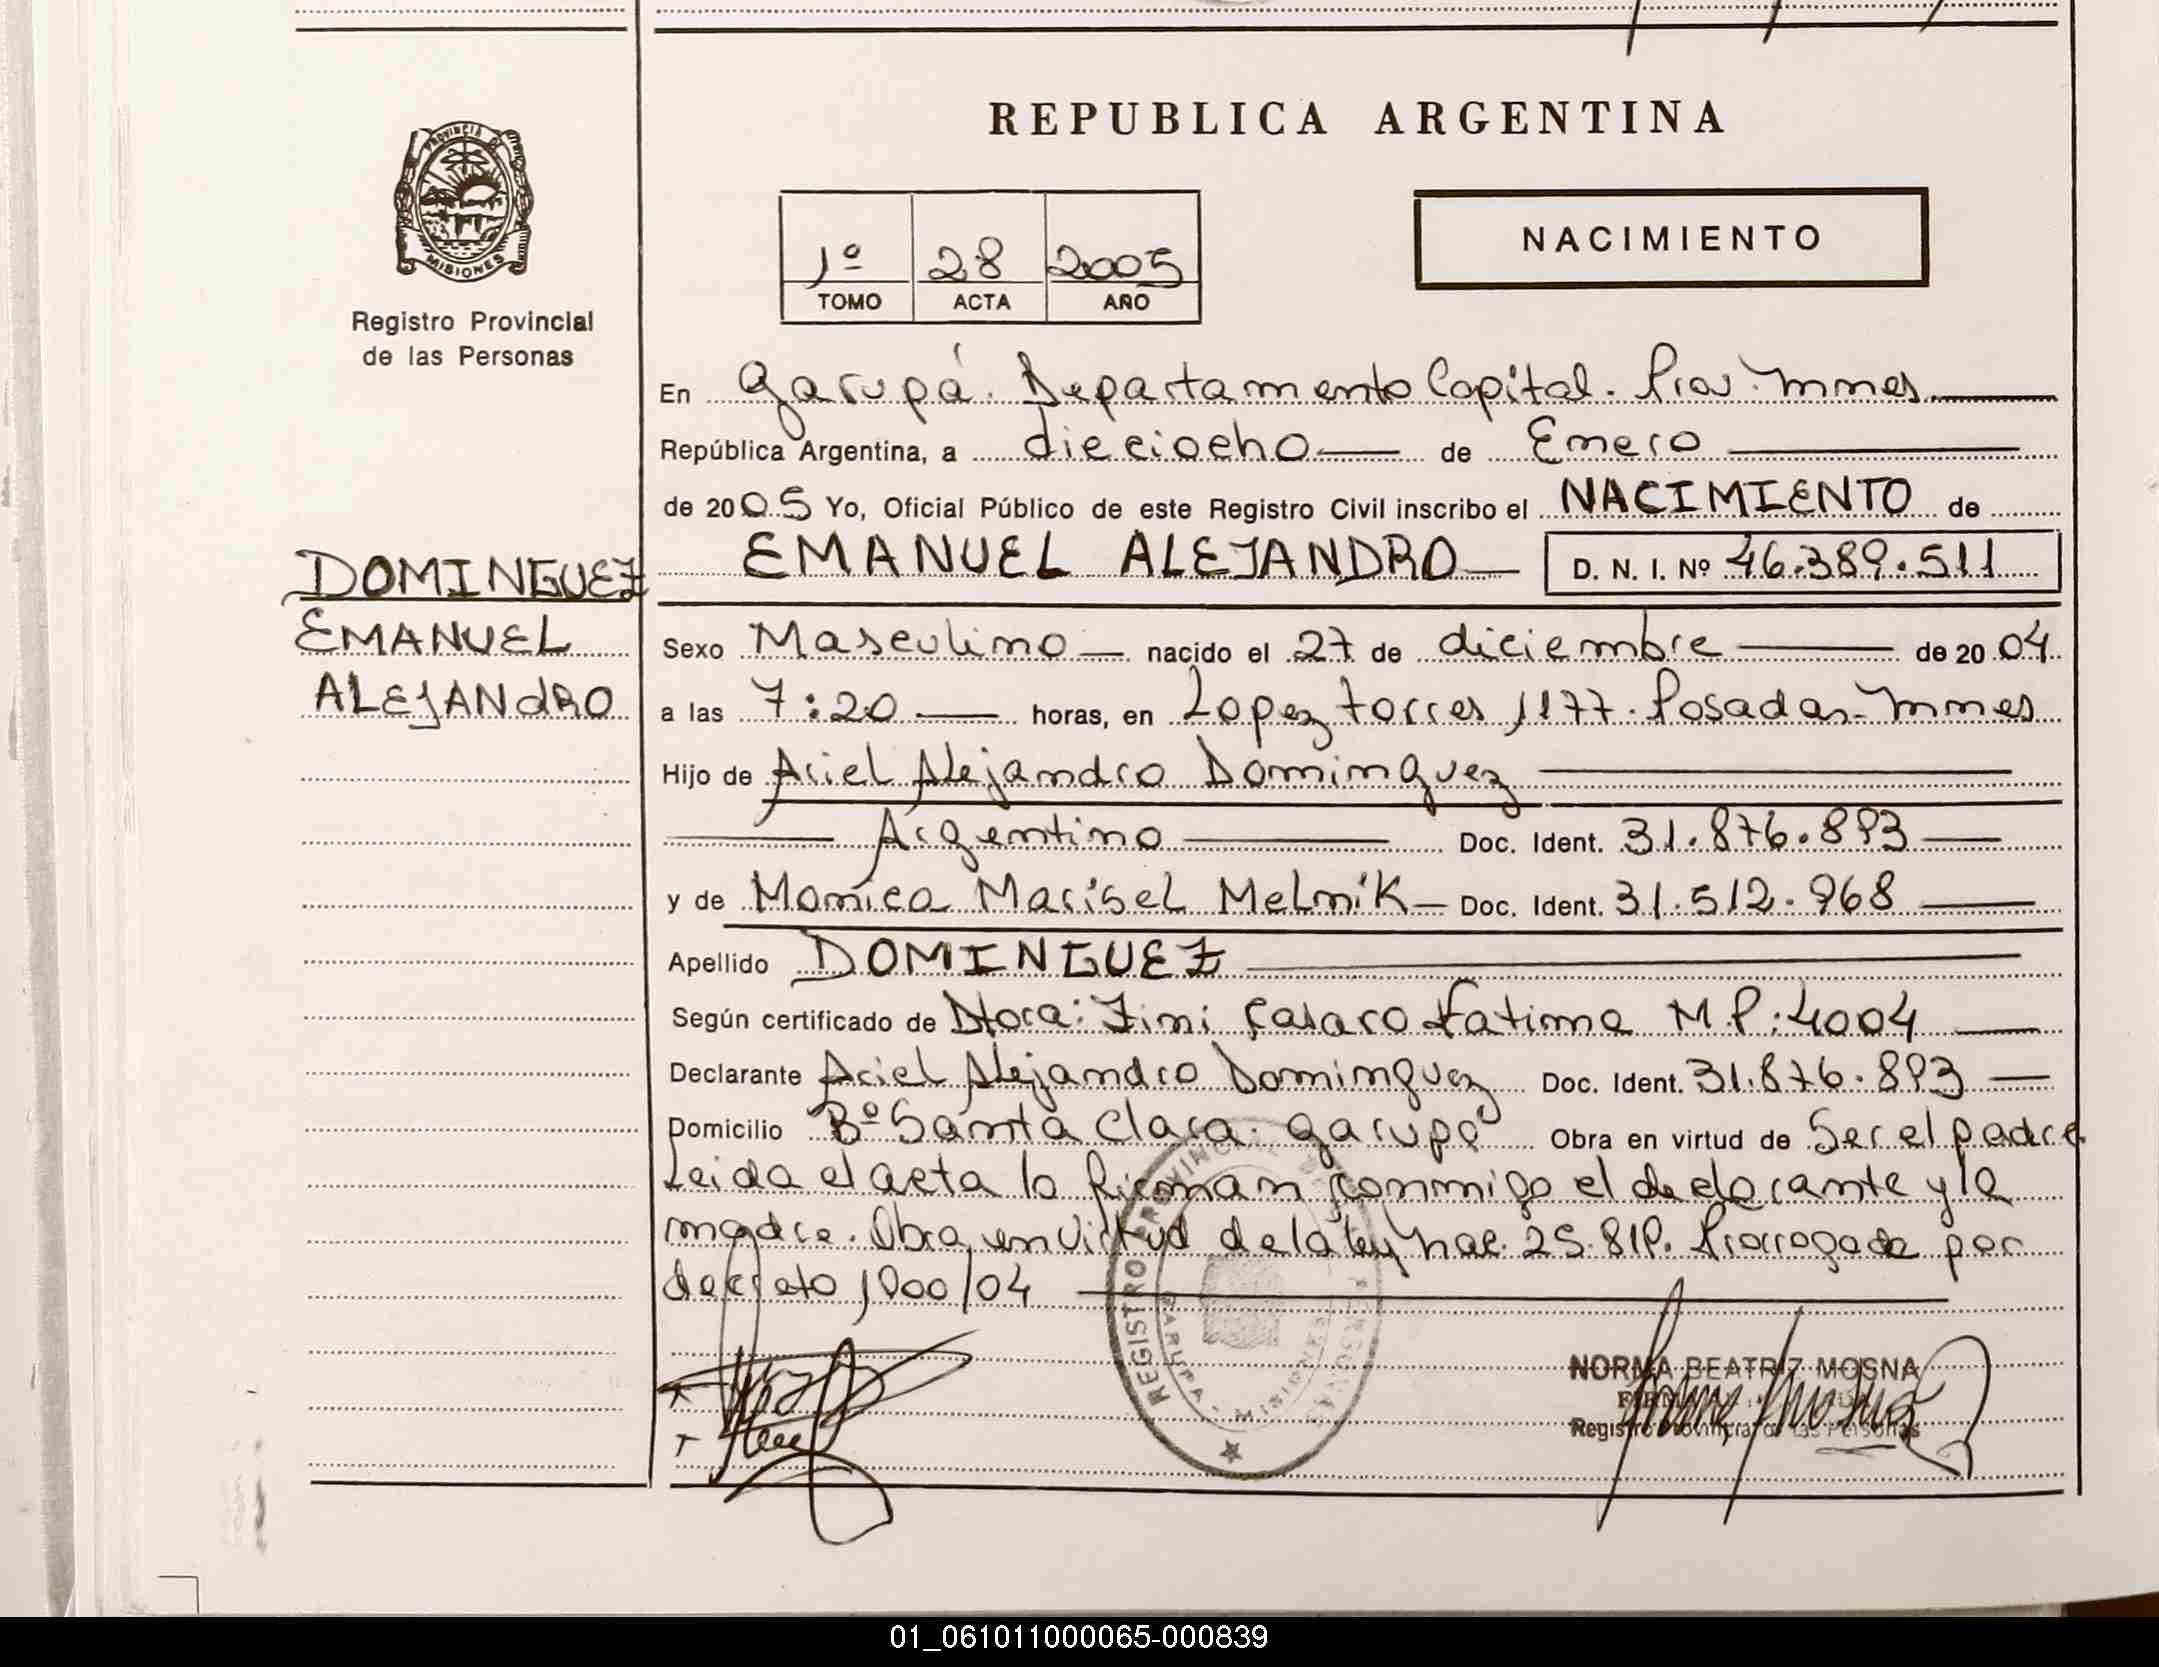 REPUBLICA ARGENTINA
PROVINCIA DE
MISIONES
Registro Provincial
de las Personas
1º 28 2005
TOMO ACTA AÑO
NACIMIENTO
En Garupá. Departamento Capital. Prov. Mnes
República Argentina, a dieciocho de Enero
de 2005 Yo, Oficial Público de este Registro Civil inscribo el NACIMIENTO de
DOMINGUEZ
EMANUEL
ALEJANDRO
EMANUEL ALEJANDRO D. N. I. Nº 46.389.511
Sexo Masculino nacido el 27 de diciembre de 2004
a las 7:20 horas, en Lopez torres 1177. Posadas-Mnes
Hijo de Ariel Alejandro Dominguez
Argentino Doc. Ident. 31.876.893
y de Monica Marisel Melnik Doc. Ident. 31.512.968
Apellido DOMINGUEZ
Según certificado de Dtora: Fatima M.P.:4004
Declarante Ariel Alejandro Dominguez Doc. Ident. 31.876.893
Domicilio Bº Santa Clara. Garupá Obra en virtud de Ser el padre
Leida el acta la firman conmigo el declarante y la
madre. Obra en Virtud de la ley nac. 25.819. Prorrogada por
decreto 1900/04
REGISTRO PROVINCIAL DE LAS PERSONAS
GARUPA - MISIONES
NORMA BEATRIZ MOSNA
Registro Provincial de las Personas
01_061011000065-000839